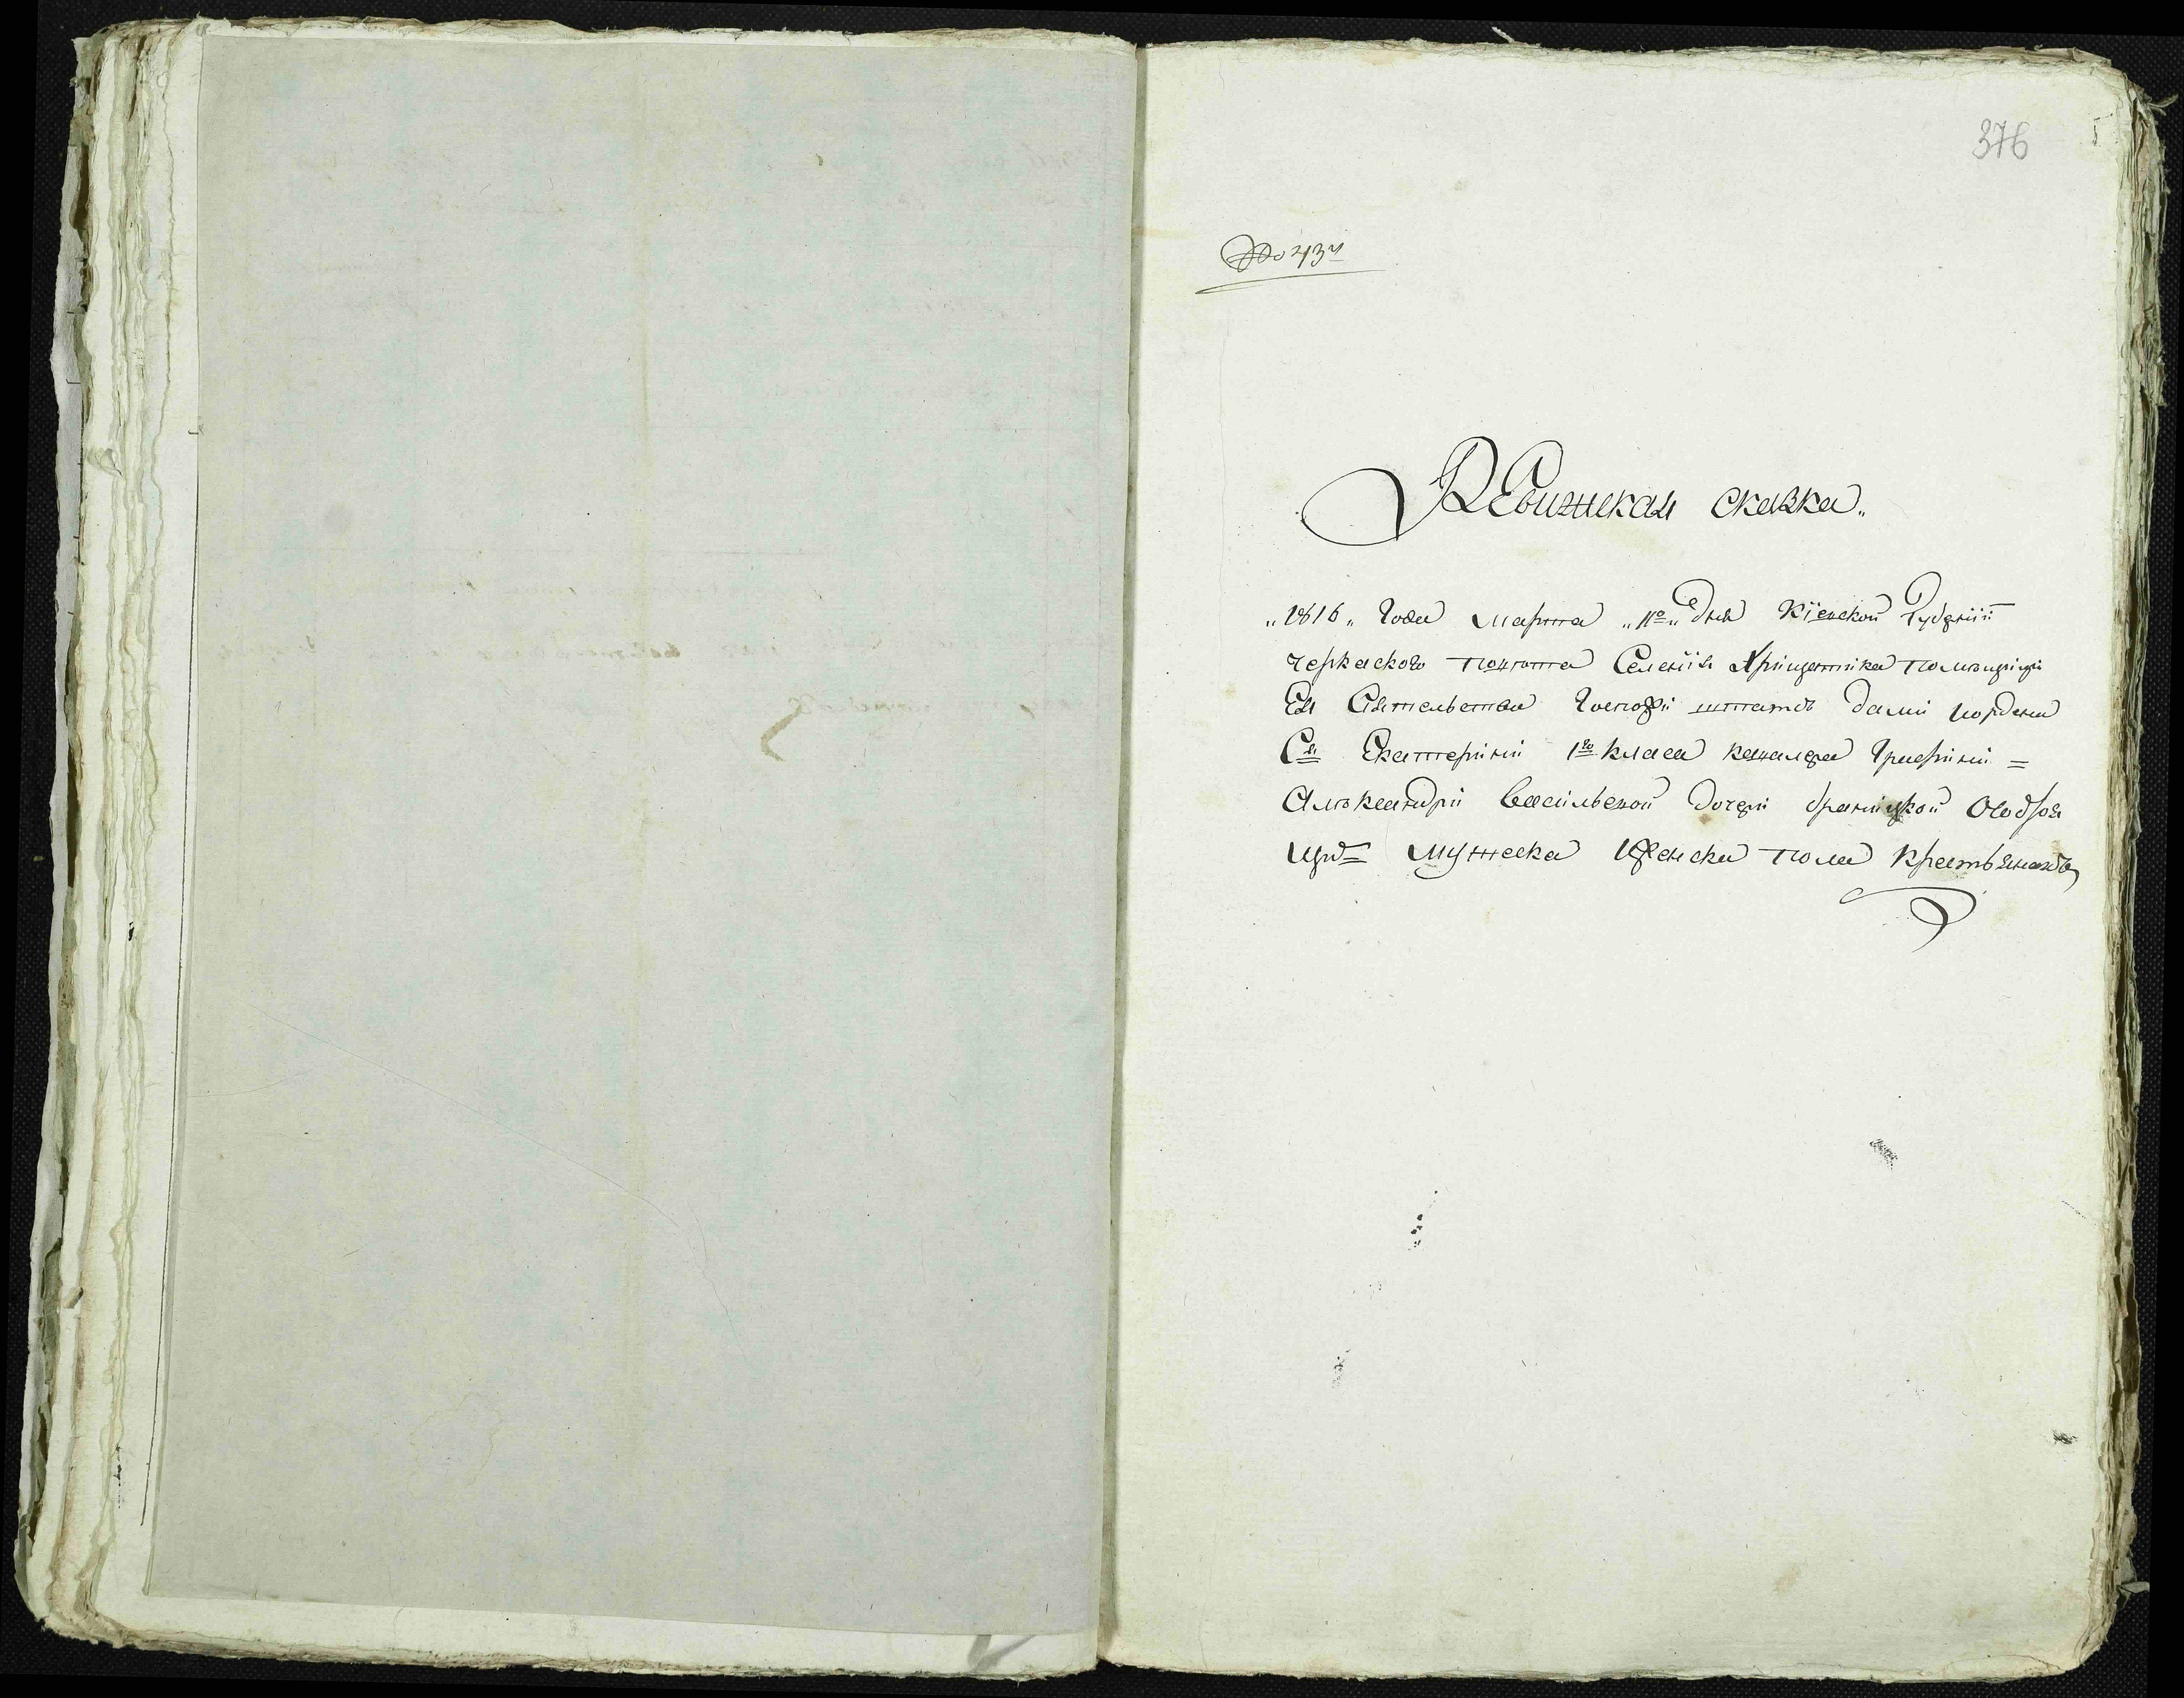 376
№ 43й
Ревижская сказка.
„1816„ Года марта „1го„ дня Кіевской Губерніи
Черкаского повѣта Селенія Хрищатика помѣщици
Ея Сіятельства Госпожи штатсъ дами иордена
Св: Екатерини 1го класа кавалера Графини =
Алѣксандри васильевой дочери браницкой Обобрѣ
тающ= мужеска иженска пола крестьянахъ